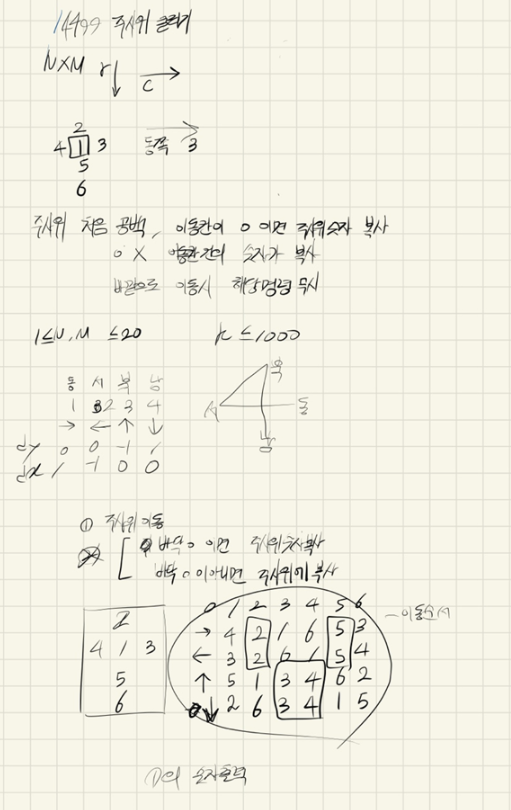 14499 주사위 굴리기
N×M r↓ →
c
2
4 1 3 동쪽 3
5
6
주사위 처음 공백, 이동칸이 0 이면 주사위숫자 복사
0 X 이동칸칸의 숫자가 복사
바깥으로 이동시 해당명령 무시
1≤N,M ≤20 k ≤1000
북
동 서 북 남
1 2 3 4 서 동
→ ← ↑ ↓
남
dy 0 0 -1 1
dx 1 -1 0 0
① 주사위 이동
바닥 0 이면 주사위숫자복사
바닥 0 이아니면 주사위에 복사
0 1 2 3 4 5 6
2 → 4 2 1 6 5 3 -이동순서
4 1 3 ← 3 2 6 1 5 4
5 ↑ 5 1 3 4 6 2
6 ↓ 2 6 3 4 1 5
숫자출력